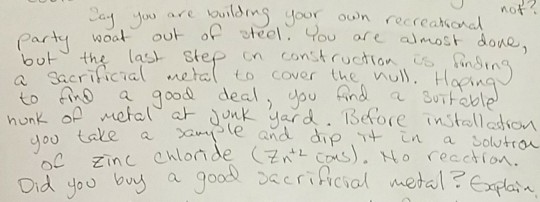 not?
Say you are building your own recreational
party woat out of steel. You are almost done,
but the last step in construction is finding
a sacrificial metal to cover the hull. Hoping
to find a good deal, you find a suitable
hunk of metal at junk yard. Before installation
you take a sample and dip it in a solution
of zinc chloride (Zn+2 ions). No reaction.
Did you buy a good sacrificial metal? Explain.